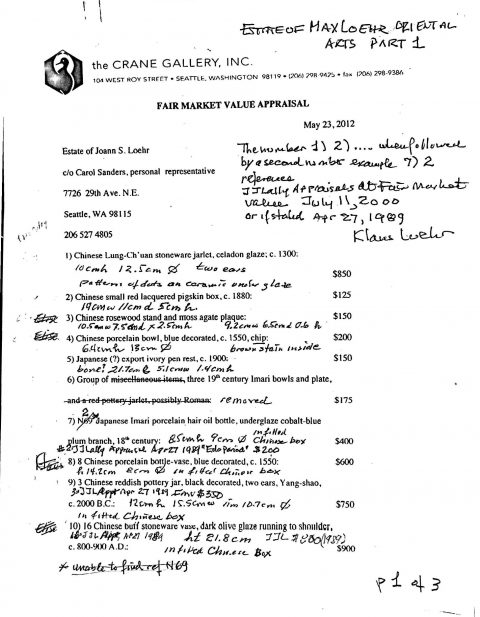 ESTATE OF MAX LOEHR ORIENTAL
ARTS PART 1
the CRANE GALLERY, INC.
104 WEST ROY STREET • SEATTLE, WASHINGTON 98119 • (206) 298-9425 • fax (206) 298-9386
FAIR MARKET VALUE APPRAISAL
May 23, 2012
Estate of Joann S. Loehr
c/o Carol Sanders, personal representative
7726 29th Ave. N.E.
Seattle, WA 98115
206 527 4805
The number 1) 2) .... when followed
by a second number example 7) 2
reference
JJLally Appraisals at Fair Market
value July 11, 2000
or if stated Apr 27, 1989
Klaus Loehr
1) Chinese Lung-Ch'uan stoneware jarlet, celadon glaze; c. 1300:
10cmh 12.5cm Ø two ears $850
pattern of dots on ceramic under glaze
2) Chinese small red lacquered pigskin box, c. 1880: $125
19cmw 11cmd 5cmh
3) Chinese rosewood stand and moss agate plaque: $150
10.5cmw 7.5cmd x 2.5cmh 9.2cmw 6.5cmd 0.6 h
4) Chinese porcelain bowl, blue decorated, c. 1550, chip: $200
6.4cmh 13cm Ø brown stain inside
5) Japanese (?) export ivory pen rest, c. 1900: $150
bone? 21.7cmL 5.1cmw 1.4cmh
6) Group of miscellaneous items, three 19th century Imari bowls and plate,
and a red pottery jarlet, possibly Roman: removed $175
7) 2 Japanese Imari porcelain hair oil bottle, underglaze cobalt-blue
plum branch, 18th century: 8.5cmh 9cm Ø in fitted Chinese box $400
JJLally Appraisal Apr 27 1989 "Edo Period" $200
8) 8 Chinese porcelain bottle-vase, blue decorated, c. 1550: $600
h 14.2cm 8cm Ø in fitted Chinese box
9) 3 Chinese reddish pottery jar, black decorated, two ears, Yang-shao,
JJL Appr Apr 27 1989 FMV $350
c. 2000 B.C.: 12cmh 15.5cmw rim 10.7cm Ø $750
in fitted Chinese box
10) 16 Chinese buff stoneware vase, dark olive glaze running to shoulder,
JJL Appr Apr 27 1989 ht 21.8cm JJL $800 (1989)
c. 800-900 A.D.: in fitted Chinese Box $900
* unable to find ref N69
p 1 of 3